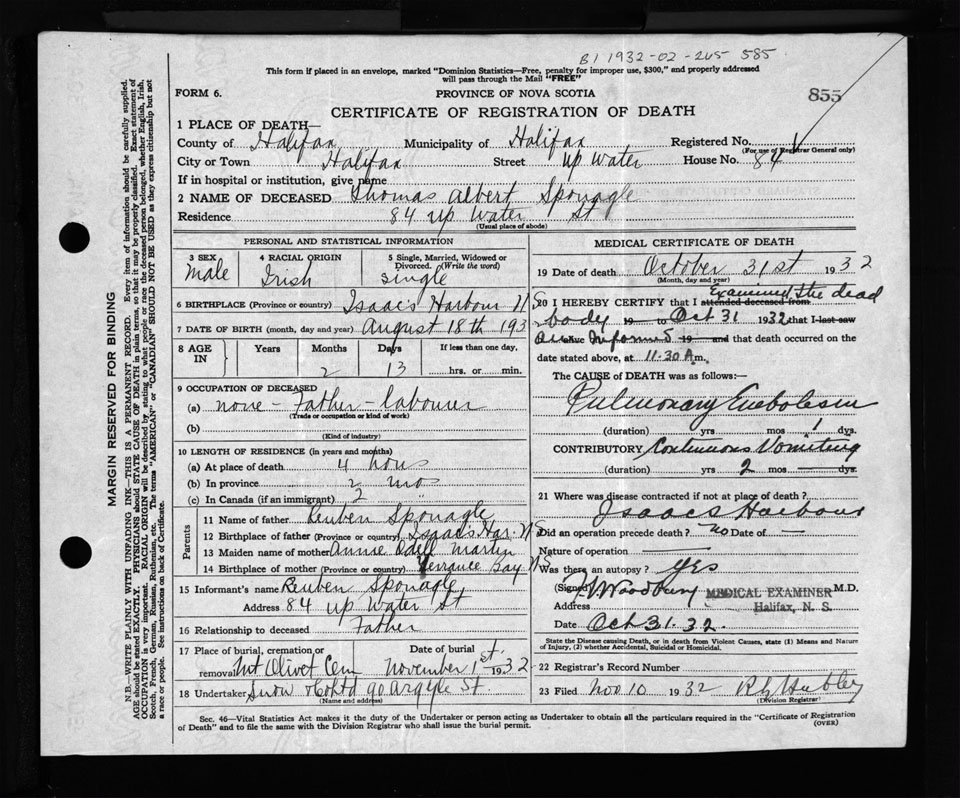 B1 1932-02-205 585
This form if placed in an envelope, marked "Dominion Statistics—Free, penalty for improper use, $300," and properly addressed
will pass through the Mail "FREE"
FORM 6.
PROVINCE OF NOVA SCOTIA
855
CERTIFICATE OF REGISTRATION OF DEATH
1 PLACE OF DEATH—
County of Halifax Municipality of Halifax Registered No.
(For use of Registrar General only)
City or Town Halifax Street Up Water House No. 84
If in hospital or institution, give name
2 NAME OF DECEASED Thomas Albert Sponagle
Residence 84 Up Water St
(Usual place of abode)
PERSONAL AND STATISTICAL INFORMATION
3 SEX Male
4 RACIAL ORIGIN Irish
5 Single, Married, Widowed or Divorced. (Write the word) Single
6 BIRTHPLACE (Province or country) Isaac's Harbour N S
7 DATE OF BIRTH (month, day and year) August 18th 193
8 AGE IN Years Months 2 Days 13 If less than one day. hrs. or min.
9 OCCUPATION OF DECEASED
(a) none - Father - labourer
(Trade or occupation or kind of work)
(b)
(Kind of industry)
10 LENGTH OF RESIDENCE (in years and months)
(a) At place of death 4 hours
(b) In province 2 mo
(c) In Canada (if an immigrant) 2 "
Parents
11 Name of father Reuben Sponagle
12 Birthplace of father (Province or country) Isaac's Har. N S
13 Maiden name of mother Annie Odell Martin
14 Birthplace of mother (Province or country) Terrance Bay N S
15 Informant's name Reuben Sponagle
Address 84 Up Water St
16 Relationship to deceased Father
17 Place of burial, cremation or removal Mt Olivet Cem Date of burial November 1st 1932
18 Undertaker Snow & Co Ltd 90 Argyle St
(Name and address)
MEDICAL CERTIFICATE OF DEATH
19 Date of death October 31st 1932
(Month, day and year)
20 I HEREBY CERTIFY that I attended deceased from Examined the dead
body 19 to Oct 31 1932 that I last saw
alive Informed 19 and that death occurred on the
date stated above, at 11.30 A m.
The CAUSE of DEATH was as follows:—
Pulmonary Embolism
(duration) yrs mos 1 dys.
CONTRIBUTORY Continuous Vomiting
(duration) yrs 2 mos — dys.
21 Where was disease contracted if not at place of death?
Isaacs Harbour
Did an operation precede death? no Date of —
Nature of operation —
Was there an autopsy? Yes
(Signed) Woodbury M.D.
MEDICAL EXAMINER
Address Halifax, N. S.
Date Oct 31.32.
State the Disease causing Death, or in death from Violent Causes, state (1) Means and Nature
of Injury, (2) whether Accidental, Suicidal or Homicidal.
22 Registrar's Record Number
23 Filed Nov 10 1932
(Division Registrar)
Sec. 46—Vital Statistics Act makes it the duty of the Undertaker or person acting as Undertaker to obtain all the particulars required in the "Certificate of Registration
of Death" and to file the same with the Division Registrar who shall issue the burial permit.
(OVER)
MARGIN RESERVED FOR BINDING
N.B.—WRITE PLAINLY WITH UNFADING INK—THIS IS A PERMANENT RECORD. Every item of information should be carefully supplied.
AGE should be stated EXACTLY. PHYSICIANS should STATE CAUSE OF DEATH in plain terms, so that it may be properly classified. Exact statement of
OCCUPATION is very important. RACIAL ORIGIN will be described by stating to what people or race the deceased person belonged, whether English, Irish,
Scotch, French, German, Russian, Ruthenian, etc. The terms "AMERICAN" or "CANADIAN" SHOULD NOT BE USED as they express citizenship but not
a race or people. See instructions on back of Certificate.